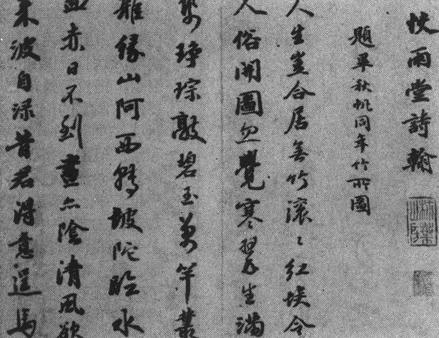 快雨堂詩翰
題畢秋帆同年竹所圖
人生豈合居無竹滾〻紅埃令
人俗開圖忽覺寒翠生滿
琤琮敲碧玉萬竿叢
雜緣山阿西轉坡陀臨水
曲赤日不到晝亦陰清風欲
來波自淥昔君得意逞馬